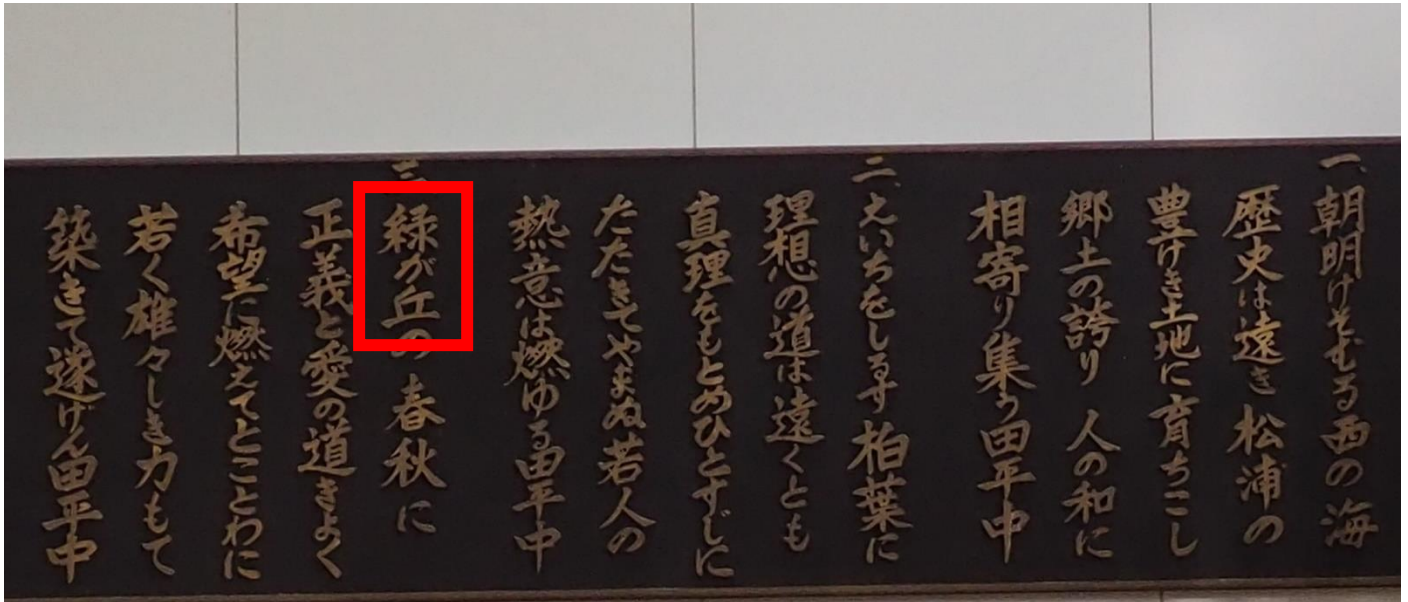 一、朝明けそむる西の海
歴史は遠き 松浦の
豊けき土地に育ちこし
郷土の誇り 人の和に
相寄り集う田平中
二、えいちをしるす 柏葉に
理想の道は遠くとも
真理をもとめひとすじに
たたきてやまぬ若人の
熱意は燃ゆる田平中
三、緑が丘の 春秋に
正義と愛の道きよく
希望に燃えてとことわに
若く雄々しき力もて
築きて遂げん田平中